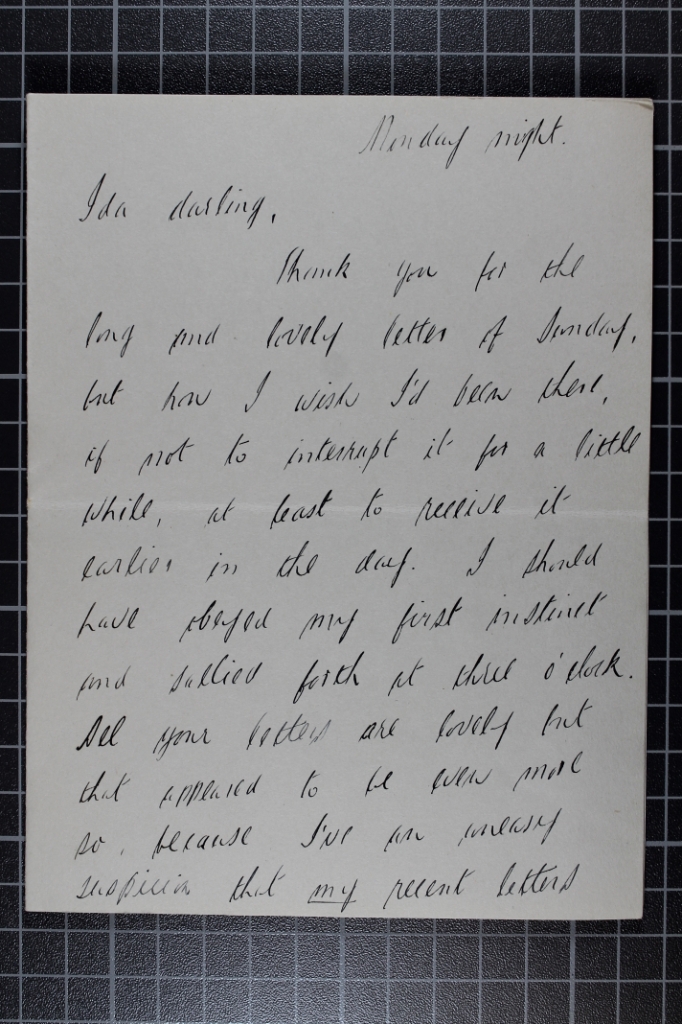 Monday night.
Ida darling,
Thank you for the
long and lovely letter of Sunday,
but how I wish I'd been there,
if not to interrupt it for a little
while, at least to receive it
earlier in the day. I should
have obeyed my first instinct
and sallied forth at three o'clock.
All your letters are lovely but
that appeared to be even more
so, because I've an uneasy
suspicion that my recent letters